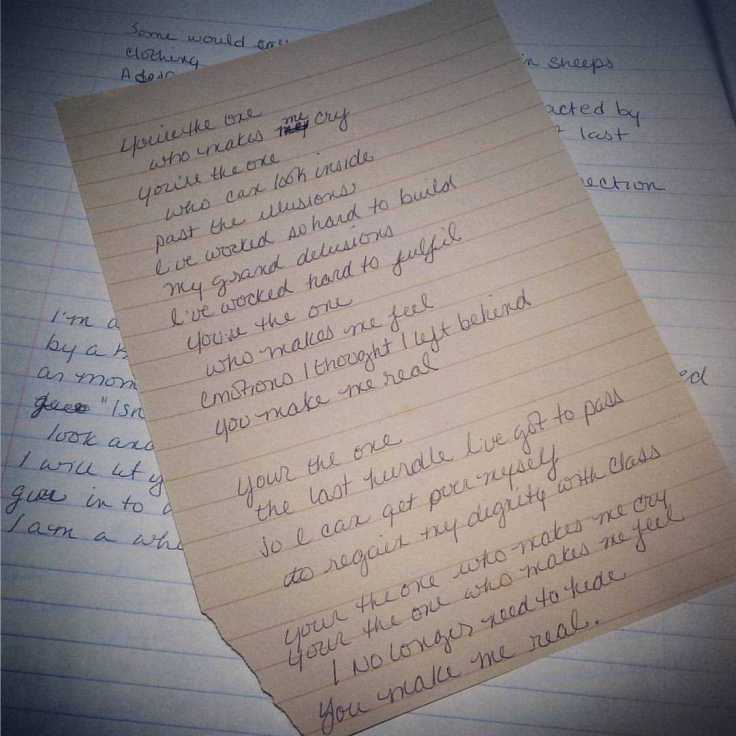 Some would
clothing
in sheeps
acted by
last
ection
You're the one
who makes me cry
You're the one
who can look inside
past the illusions
I've worked so hard to build
my grand delusions
I've worked hard to fulfil
You're the one
who makes me feel
emotions I thought I left behind
You make me real
Your the one
the last hurdle I've got to pass
so I can get over myself
to regain my dignity with class
your the one who makes me cry
your the one who makes me feel
I No longer need to hide
You make me real.
I'm a
by a
as mom
"Isn
look and
I will let y
give in to a
I am a who
ed